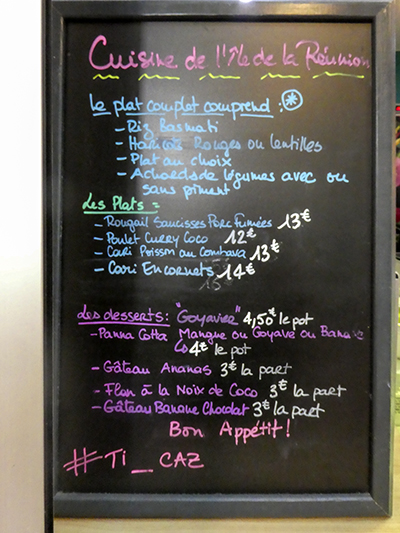 Cuisine de l'Île de la Réunion
Le plat complet comprend :*
- Riz Basmati
- Haricots Rouges ou lentilles
- Plat au choix
- Achards de légumes avec ou
sans piment
Les Plats =
- Rougail Saucisses Porc fumées 13€
- Poulet Curry Coco 12€
- Cari Poisson au Combava 13€
- Cari Encornets 14€
Les desserts : "Goyavier" 4,50€ le pot
- Panna Cotta Mangue ou Goyave ou Banane
↳ 4€ le pot
- Gâteau Ananas 3€ la part
- Flan à la Noix de Coco 3€ la part
- Gâteau Banane Chocolat 3€ la part
Bon Appétit !
#Ti_CAZ